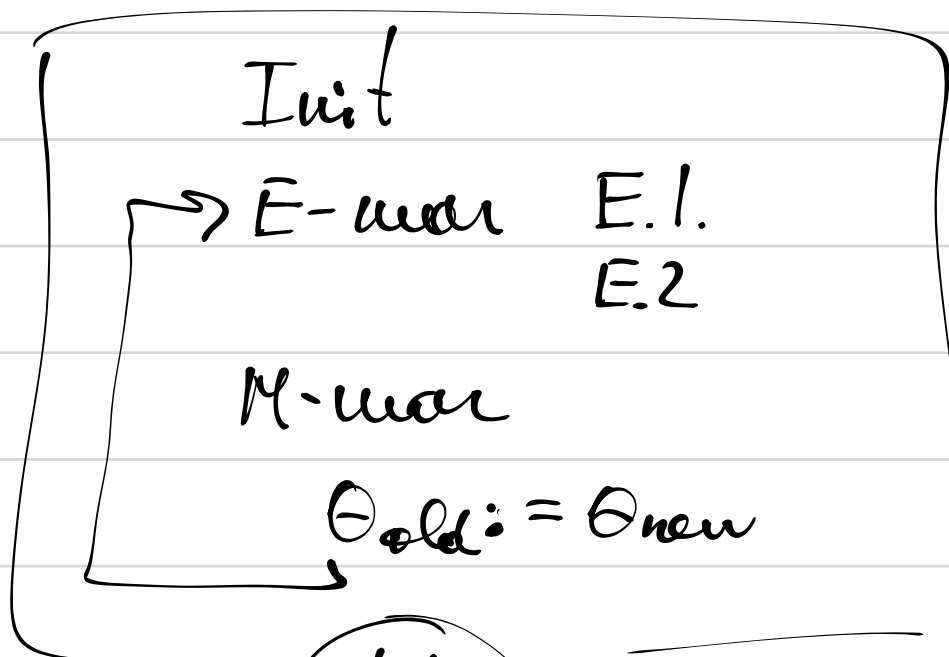 Init
E-шаг E.1.
E.2
M-шаг
θold := θnew